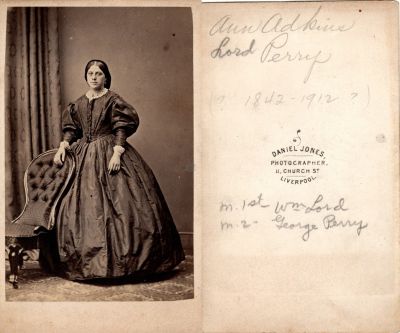 Ann Adkins
Lord Perry
(? 1842-1912 ?)
DANIEL JONES,
PHOTOGRAPHER,
11, CHURCH ST
LIVERPOOL
m. 1st Wm Lord
m. 2- George Perry